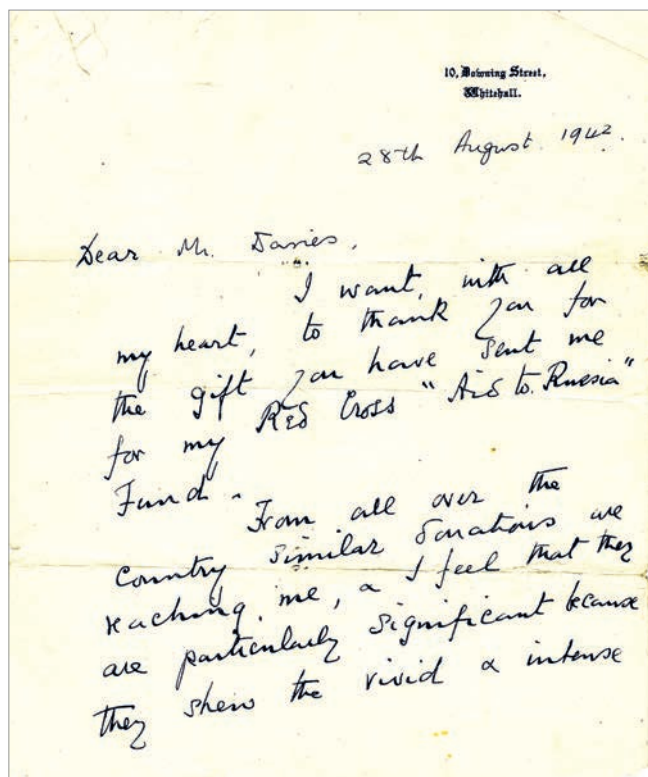 10, Downing Street,
Whitehall.
28th August. 1942.
Dear Mr. Davies,
I want, with all
my heart, to thank you for
the gift you have sent me
for my Red Cross "Aid to Russia"
Fund.
From all over the
country similar donations are
reaching me, & I feel that they
are particularly significant because
they shew the vivid & intense